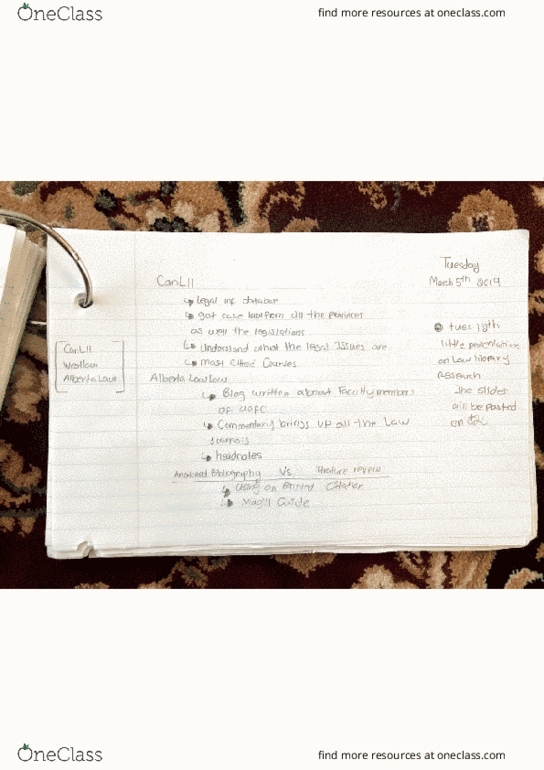 OneClass
find more resources at oneclass.com
Tuesday
March 5th 2019
CanLII
legal info database
got case law from all the provinces
as well the legislations
Understand what the legal Issues are
most cited Courses
CanLII
Westlaw
Alberta Law
tues 18th
little presentation
on Law library
Research
the slides
will be posted
on d2l
Alberta Law
Blog written about Faculty members
of UOFC
Commentary brings up all the Law
headnotes
Bibliography Vs review
Using
Magill Guide
OneClass
find more resources at oneclass.com